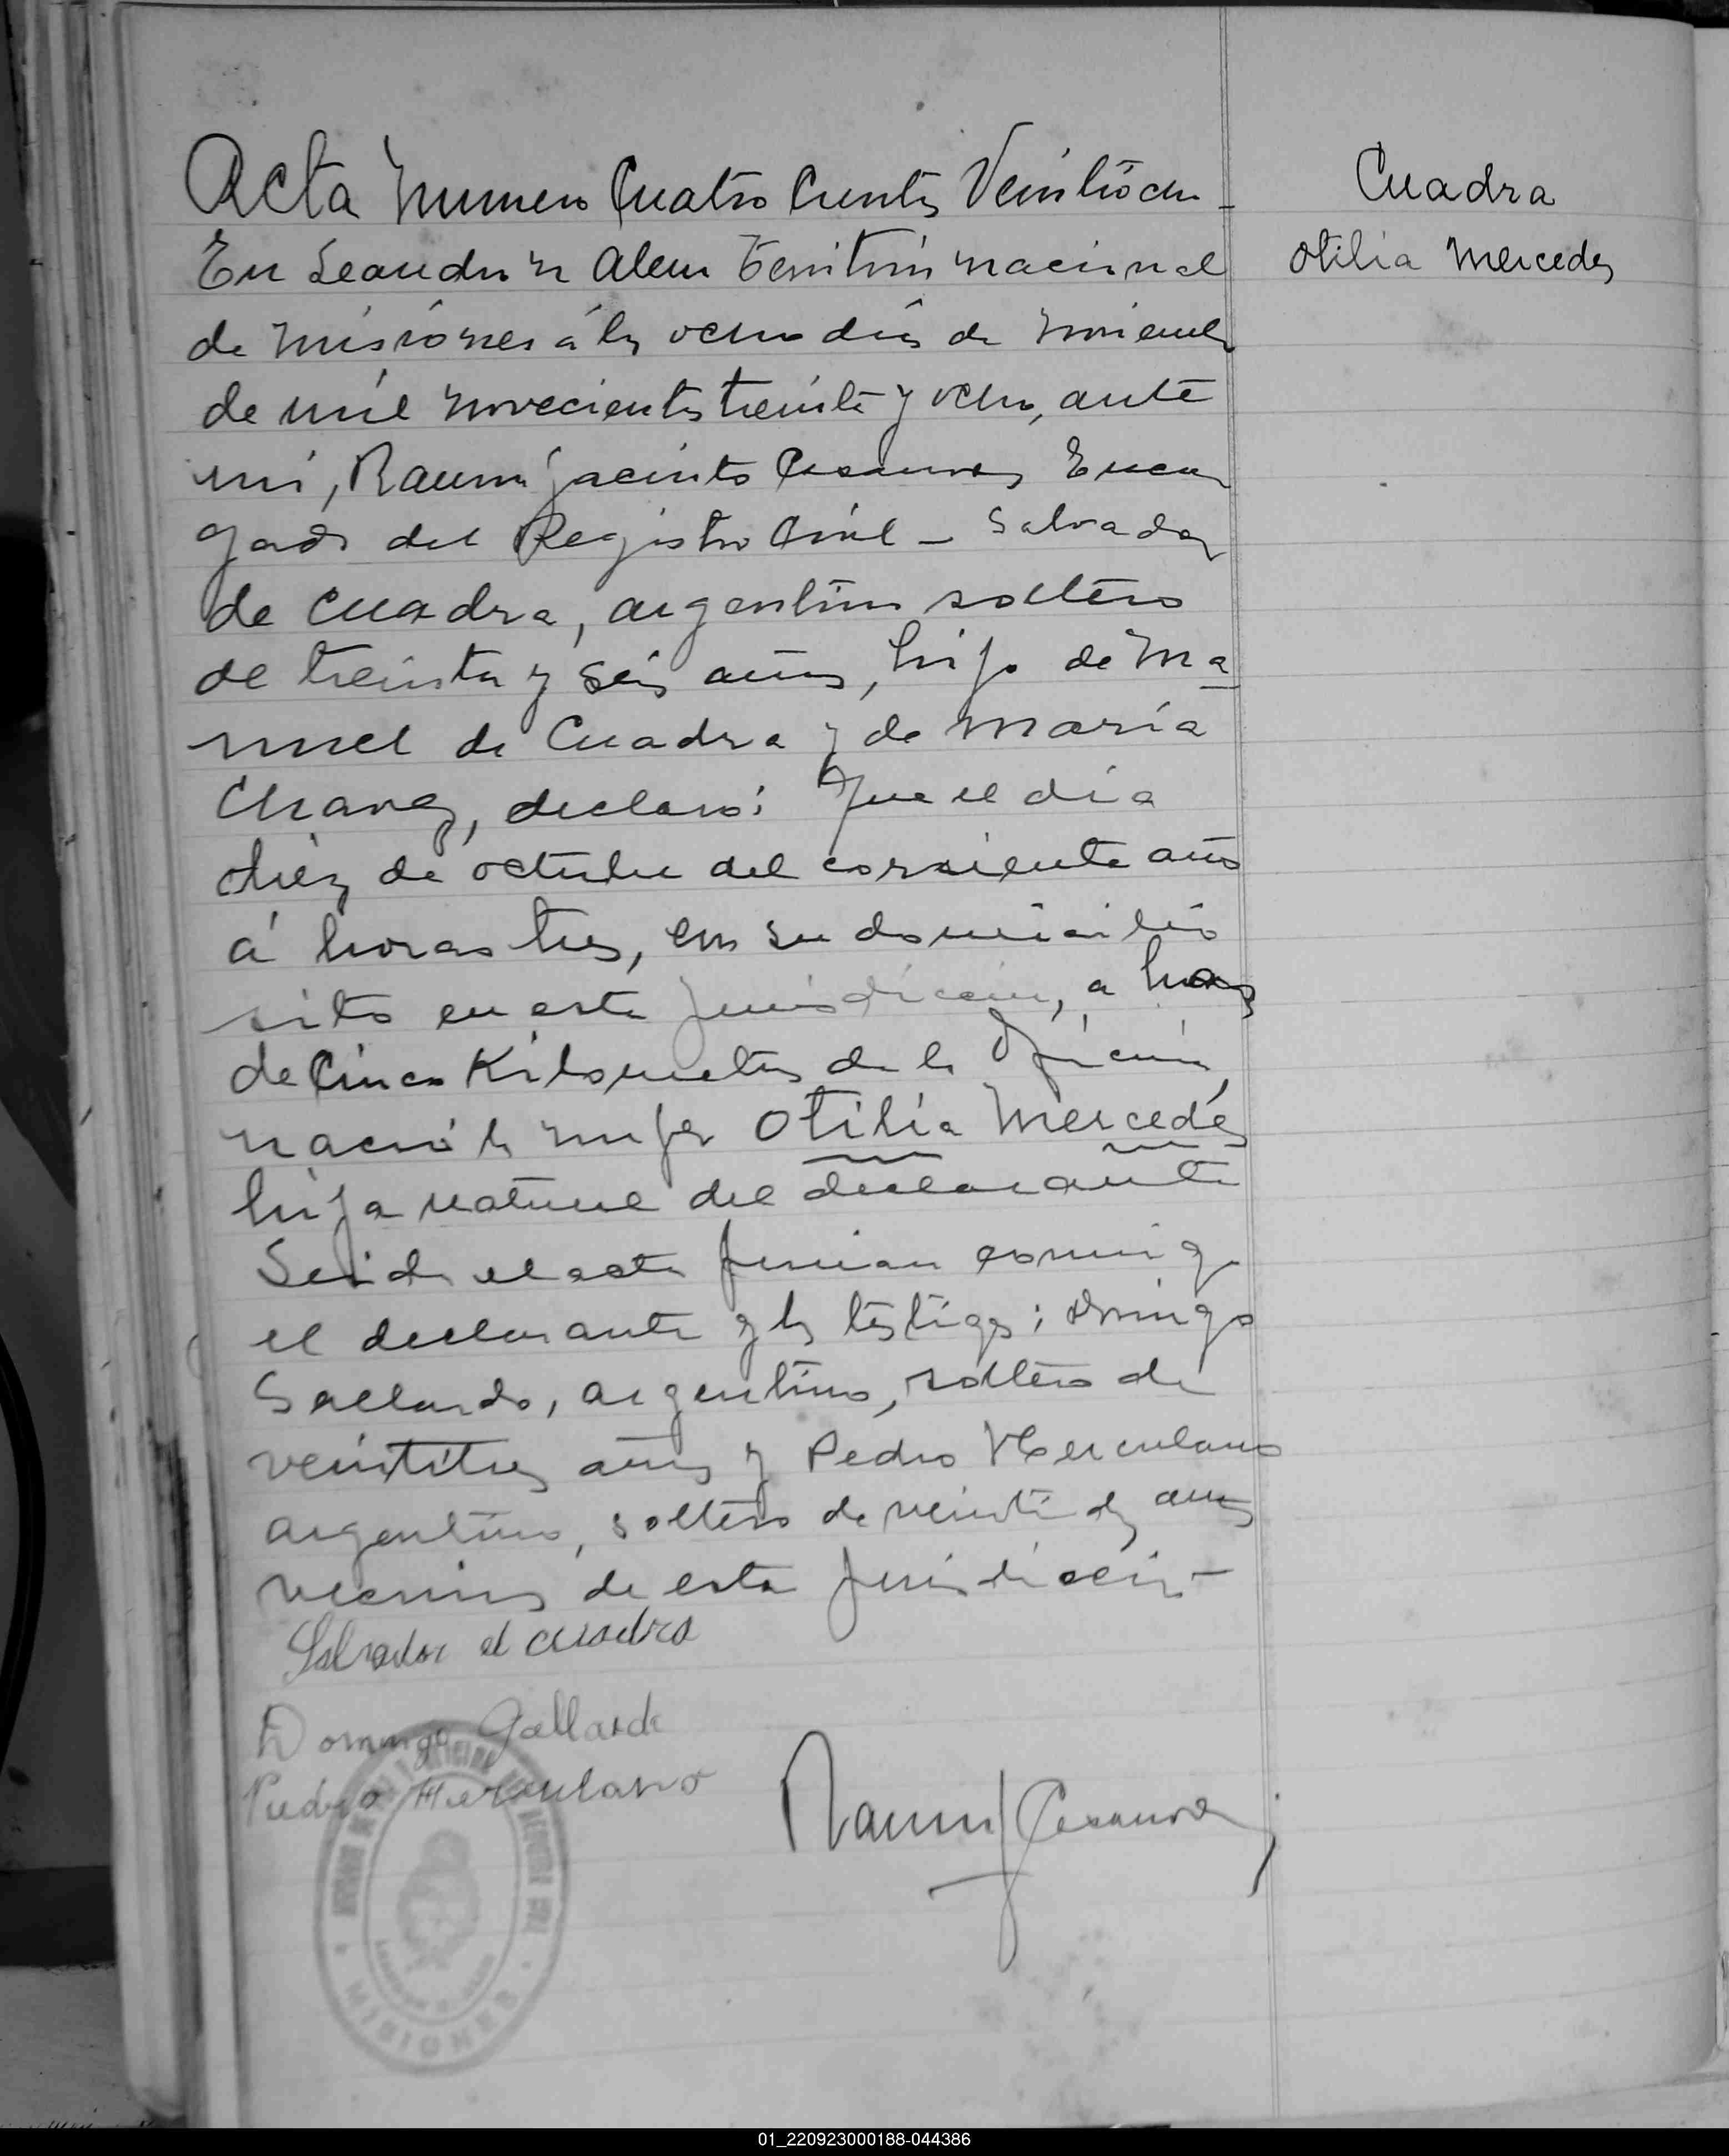 Acta Numero Cuatro Cientos Veintiocho -
Cuadra
En Leandro N Alem Territorio nacional
Otilia Mercedes
de Misiones á los ocho dias de Noviembre
de mil novecientos treinta y ocho, ante
mi, Raum Jacinto Encar
gado del Registro Civil - Salvador
de Cuadra, argentino soltero
de treinta y seis años, hijo de Ma
nuel de Cuadra y de Maria
Chavez, declaró: Que el dia
diez de octubre del corriente año
á horas tres, en su domicilio
sito en esta Jurisdiccion, a
de Cinco Kilometros de la Oficina,
nació la mujer Otilia Mercedes
hija natural del declarante
Leida el acta firman conmigo
el declarante y los testigos: Domingo
Gallardo, argentino, soltero de
veintitres años y Pedro Herculano
argentino, soltero de veintidos años
vecinos de esta Jurisdiccion -
Salvador d cuadra
Domingo Gallardo
Pedro Herculano
MISIONES
01_220923000188-044386